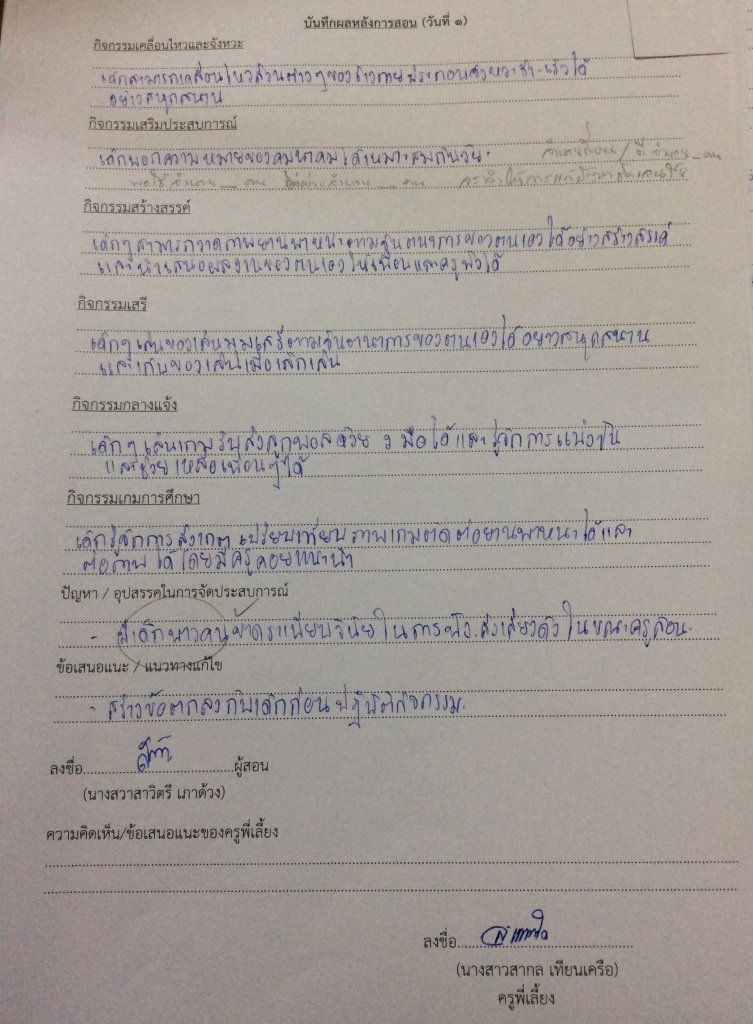 บันทึกผลหลังการสอน (วันที่ ๑)
กิจกรรมเคลื่อนไหวและจังหวะ
เด็กสามารถเคลื่อนไหวส่วนต่างๆของร่างกายประกอบจังหวะช้า-เร็วได้
อย่างสนุกสนาน
กิจกรรมเสริมประสบการณ์
เด็กบอกความหมายของคมนาคมได้เหมาะสมกับวัย.
พอใช้จำนวน__คน
กิจกรรมสร้างสรรค์
เด็กๆสามารถวาดภาพยานพาหนะตามจินตนาการของตนเองได้อย่างสร้างสรรค์
และนำเสนอผลงานของตนเองให้เพื่อนและครูฟังได้
กิจกรรมเสรี
เด็กๆเล่นของเล่นมุมเสรีตามจินตนาการของตนเองได้อย่างสนุกสนาน
และเก็บของเล่นเมื่อเลิกเล่น
กิจกรรมกลางแจ้ง
เด็กๆเล่นเกมรับส่งลูกบอลด้วย ๒ มือได้และรู้จักการแบ่งปัน
และช่วยเหลือเพื่อนๆได้
กิจกรรมเกมการศึกษา
เด็กรู้จักการสังเกต เปรียบเทียบภาพเกมตัดต่อยานพาหนะได้และ
ต่อภาพได้โดยมีครูคอยแนะนำ
ปัญหา / อุปสรรคในการจัดประสบการณ์
- มีเด็กบางคนขาดระเบียบวินัยในการฟัง ส่งเสียงดังในขณะครูสอน.
ข้อเสนอแนะ / แนวทางแก้ไข
- สร้างข้อตกลงกับเด็กก่อนปฏิบัติกิจกรรม.
ลงชื่อ..............................ผู้สอน
(นางสวาสาวิตรี เภาด้วง)
ความคิดเห็น/ข้อเสนอแนะของครูพี่เลี้ยง
ลงชื่อ..............................
(นางสาวสากล เทียนเครือ)
ครูพี่เลี้ยง